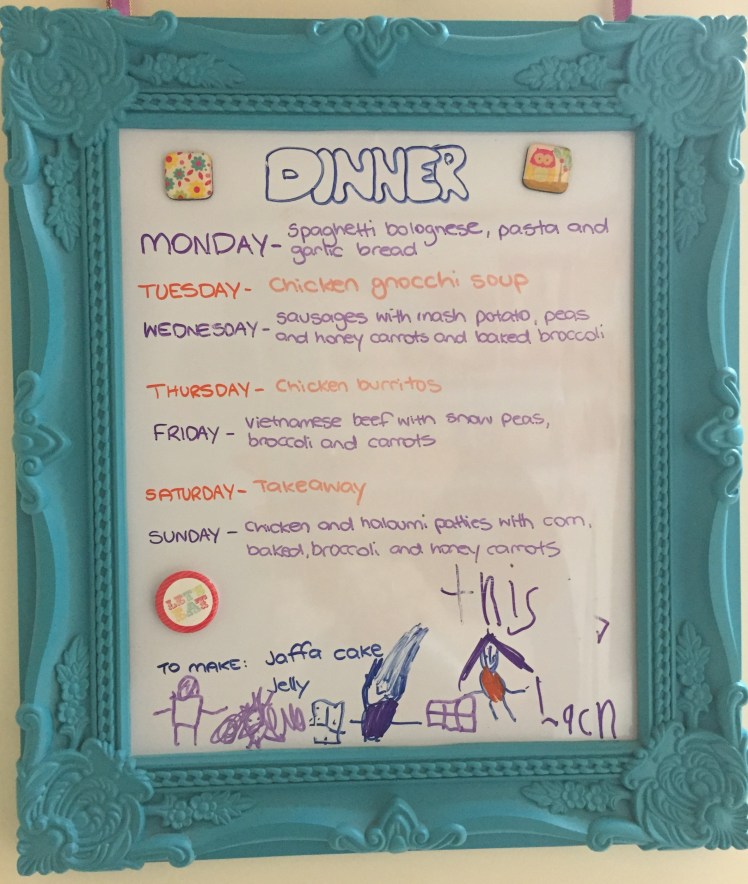 DINNER
MONDAY - spaghetti bolognese, pasta and
garlic bread
TUESDAY - Chicken gnocchi soup
WEDNESDAY - sausages with mash potato, peas
and honey carrots and baked broccoli
THURSDAY - Chicken burritos
FRIDAY - Vietnamese beef with snow peas,
broccoli and carrots
SATURDAY - Takeaway
SUNDAY - Chicken and haloumi patties with corn,
baked, broccoli and honey carrots
LET'S
EAT
this
TO MAKE: Jaffa cake
Jelly